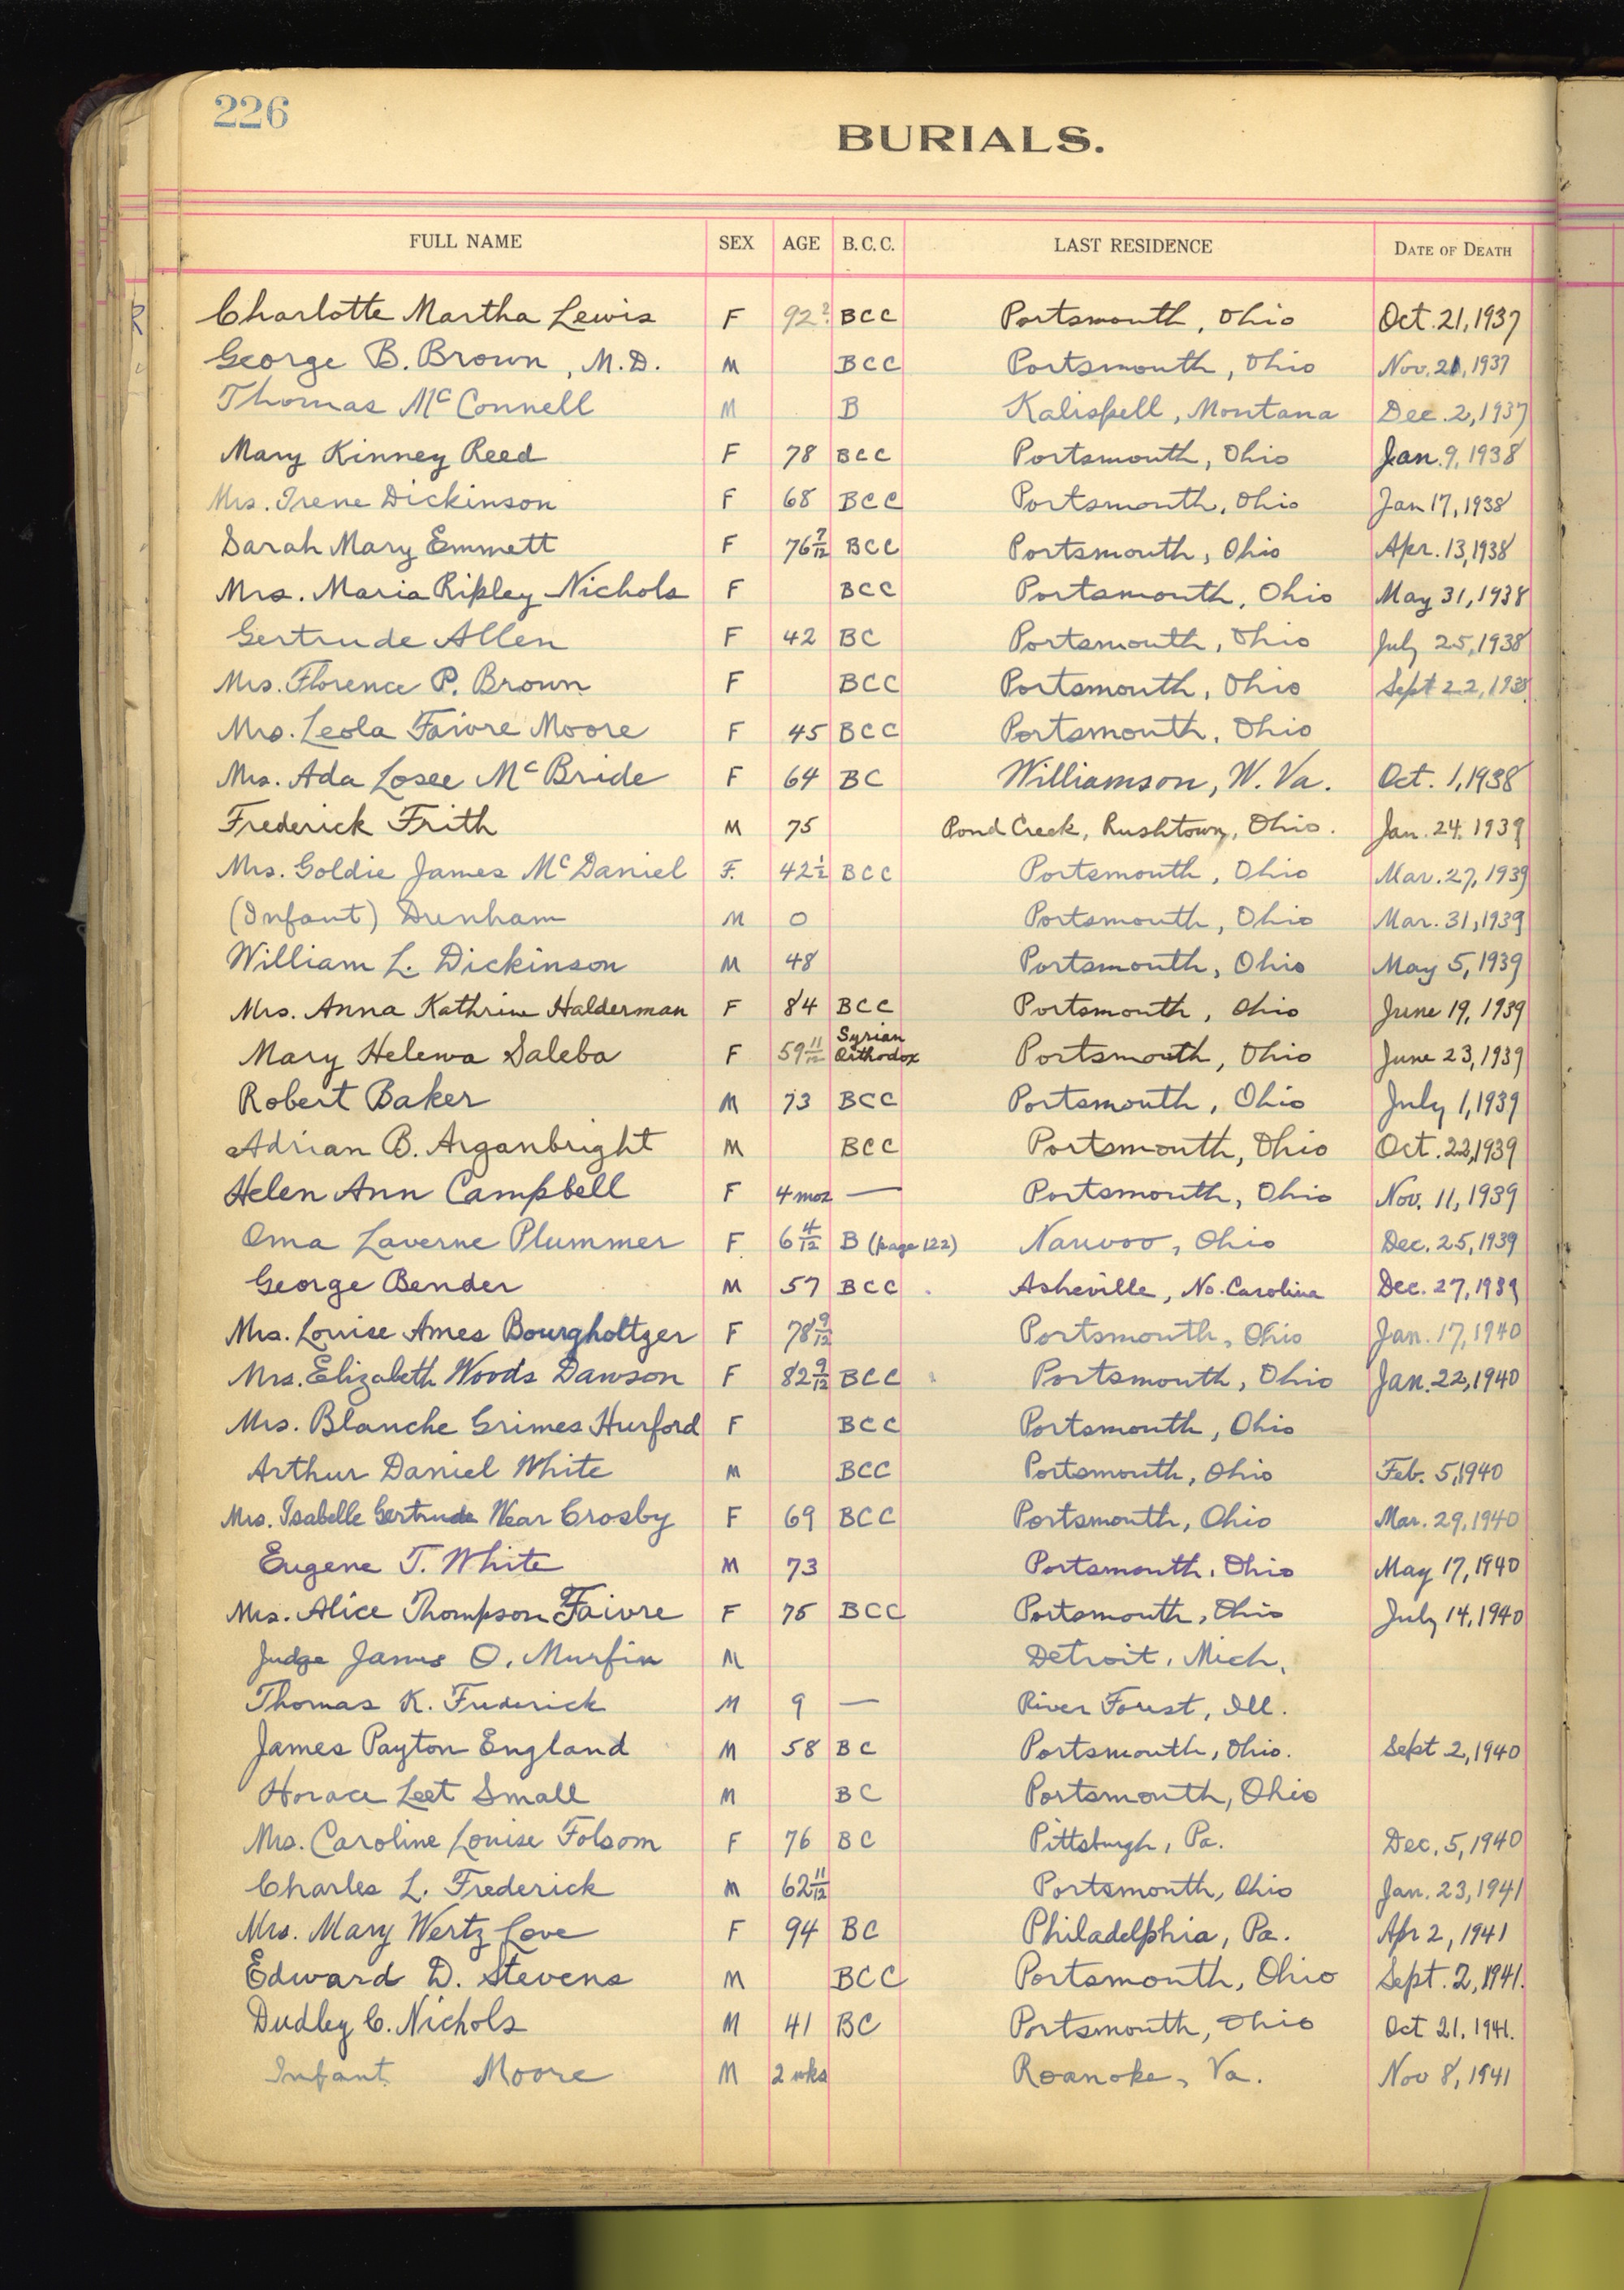 226
BURIALS.
FULL NAME SEX AGE B.C.C. LAST RESIDENCE DATE OF DEATH
R
Charlotte Martha Lewis F 92? BCC Portsmouth, Ohio Oct. 21, 1937
George B. Brown, M.D. M BCC Portsmouth, Ohio Nov. 21, 1937
Thomas McConnell M B Kalispell, Montana Dec. 2, 1937
Mary Kinney Reed F 78 BCC Portsmouth, Ohio Jan. 9, 1938
Mrs. Irene Dickinson F 68 BCC Portsmouth, Ohio Jan 17, 1938
Sarah Mary Emmett F 76 7/12 BCC Portsmouth, Ohio Apr. 13, 1938
Mrs. Maria Ripley Nichols F BCC Portsmouth, Ohio May 31, 1938
Gertrude Allen F 42 BC Portsmouth, Ohio July 25, 1938
Mrs. Florence P. Brown F BCC Portsmouth, Ohio Sept 22, 1938
Mrs. Leola Faivre Moore F 45 BCC Portsmouth, Ohio
Mrs. Ada Losee McBride F 64 BC Williamson, W. Va. Oct. 1, 1938
Frederick Frith M 75 Pond Creek, Rushtown, Ohio. Jan. 24. 1939
Mrs. Goldie James McDaniel F. 42 1/2 BCC Portsmouth, Ohio Mar. 27, 1939
(Infant) Dunham M 0 Portsmouth, Ohio Mar. 31, 1939
William L. Dickinson M 48 Portsmouth, Ohio May 5, 1939
Mrs. Anna Kathrine Halderman F 84 BCC Portsmouth, Ohio June 19, 1939
Mary Helewa Saleba F 59 11/12 Syrian Orthodox Portsmouth, Ohio June 23, 1939
Robert Baker M 73 BCC Portsmouth, Ohio July 1, 1939
Adrian B. Arganbright M BCC Portsmouth, Ohio Oct. 22, 1939
Helen Ann Campbell F 4 mos — Portsmouth, Ohio Nov. 11, 1939
Oma Laverne Plummer F 6 4/12 B (page 122) Nauvoo, Ohio Dec. 25, 1939
George Bender M 57 BCC Asheville, No. Carolina Dec. 27, 1939
Mrs. Louise Ames Bourgholtzer F 78 9/12 Portsmouth, Ohio Jan. 17, 1940
Mrs. Elizabeth Woods Dawson F 82 9/12 BCC Portsmouth, Ohio Jan. 22, 1940
Mrs. Blanche Grimes Hurford F BCC Portsmouth, Ohio
Arthur Daniel White M BCC Portsmouth, Ohio Feb. 5, 1940
Mrs. Isabelle Gertrude Wear Crosby F 69 BCC Portsmouth, Ohio Mar. 29, 1940
Eugene T. White M 73 Portsmouth, Ohio May 17, 1940
Mrs. Alice Thompson Faivre F 75 BCC Portsmouth, Ohio July 14, 1940
Judge James O. Murfin M Detroit, Mich.
Thomas K. Frederick M 9 — River Forest, Ill.
James Payton England M 58 BC Portsmouth, Ohio. Sept 2, 1940
Horace Leet Small M BC Portsmouth, Ohio
Mrs. Caroline Louise Folsom F 76 BC Pittsburgh, Pa. Dec. 5, 1940
Charles L. Frederick M 62 11/12 Portsmouth, Ohio Jan. 23, 1941
Mrs. Mary Wertz Love F 94 BC Philadelphia, Pa. Apr 2, 1941
Edward D. Stevens M BCC Portsmouth, Ohio Sept. 2, 1941.
Dudley C. Nichols M 41 BC Portsmouth, Ohio Oct 21. 1941.
Infant Moore M 2 wks Roanoke, Va. Nov 8, 1941